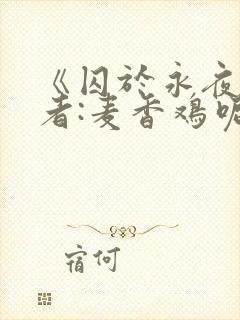 《囚於永夜
者:麦香鸡呢
宿何